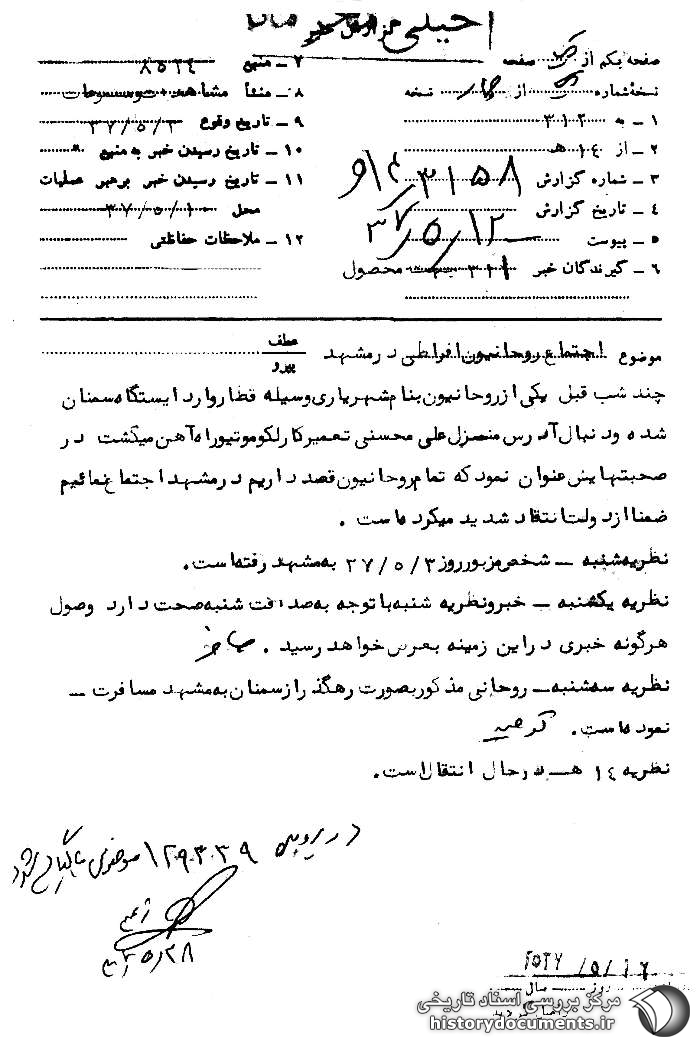 خیلی محرمانه
صفحه یکم از یک صفحه
نسخه شماره یک از چهار نسخه
۱ ـ به ۳۱۲
۲ ـ از ۱۴هـ
۳ ـ شماره گزارش ۳۱۵۸
۴ ـ تاریخ گزارش ۳۷/۵/۱۲
۵ ـ پیوست
۶ ـ گیرندگان خبر ۳۱۱ محصول
۷ ـ منبع ۸۵۲۴
۸ ـ منشأ
۹ ـ تاریخ وقوع ۳۷/۵/۳
۱۰ ـ تاریخ رسیدن خبر به منبع "
۱۱ ـ تاریخ رسیدن خبر برهبر عملیات
محل ۳۷/۵/۱۰
۱۲ ـ ملاحظات حفاظتی
موضوع اجتماع روحانیون افراطی در مشهد عطف پیرو
چند شب قبل یکی از روحانیون بنام شهریاری وسیله قطار وارد ایستگاه سمنان
شده و دنبال آدرس منزل علی محسنی تعمیرکار لکوموتیو راه آهن میگشت در
صحبتهایش عنوان نمود که تمام روحانیون قصد داریم در مشهد اجتماع نمائیم
ضمنا از دولت انتقاد شدید میکرده است .
نظریه شنبه ـ شخص مزبور روز ۲۷/۵/۳ به مشهد رفته است.
نظریه یکشنبه ـ خبر و نظریه شنبه با توجه به صداقت شنبه صحت دارد وصول
هرگونه خبری در این زمینه بعرض خواهد رسید .
نظریه سه شنبه ـ روحانی مذکور بصورت رهگذر از سمنان به مشهد مسافرت ـ
نموده است.
نظریه ۱۴ هـ در حال انتقال است.
در پرونده ۱۲۹۴۳۹
۵/۲۸
۲۵۳۷/۵/۱۶
روز سال
مرکز بررسی اسناد تاریخی
historydocuments.ir